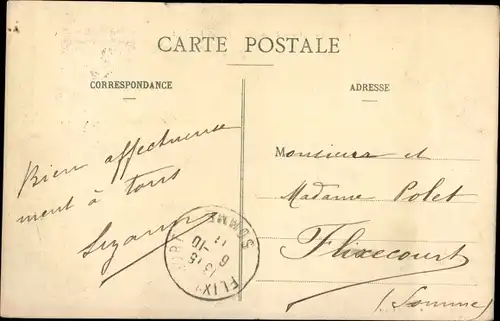 CARTE POSTALE
CORRESPONDANCE
ADRESSE
Bien affectueuse
ment à tous
Suzanne
Monsieur et
Madame Polet
Flixecourt
(Somme)
FLIXECOURT
SOMME
13 15
6 -10
11